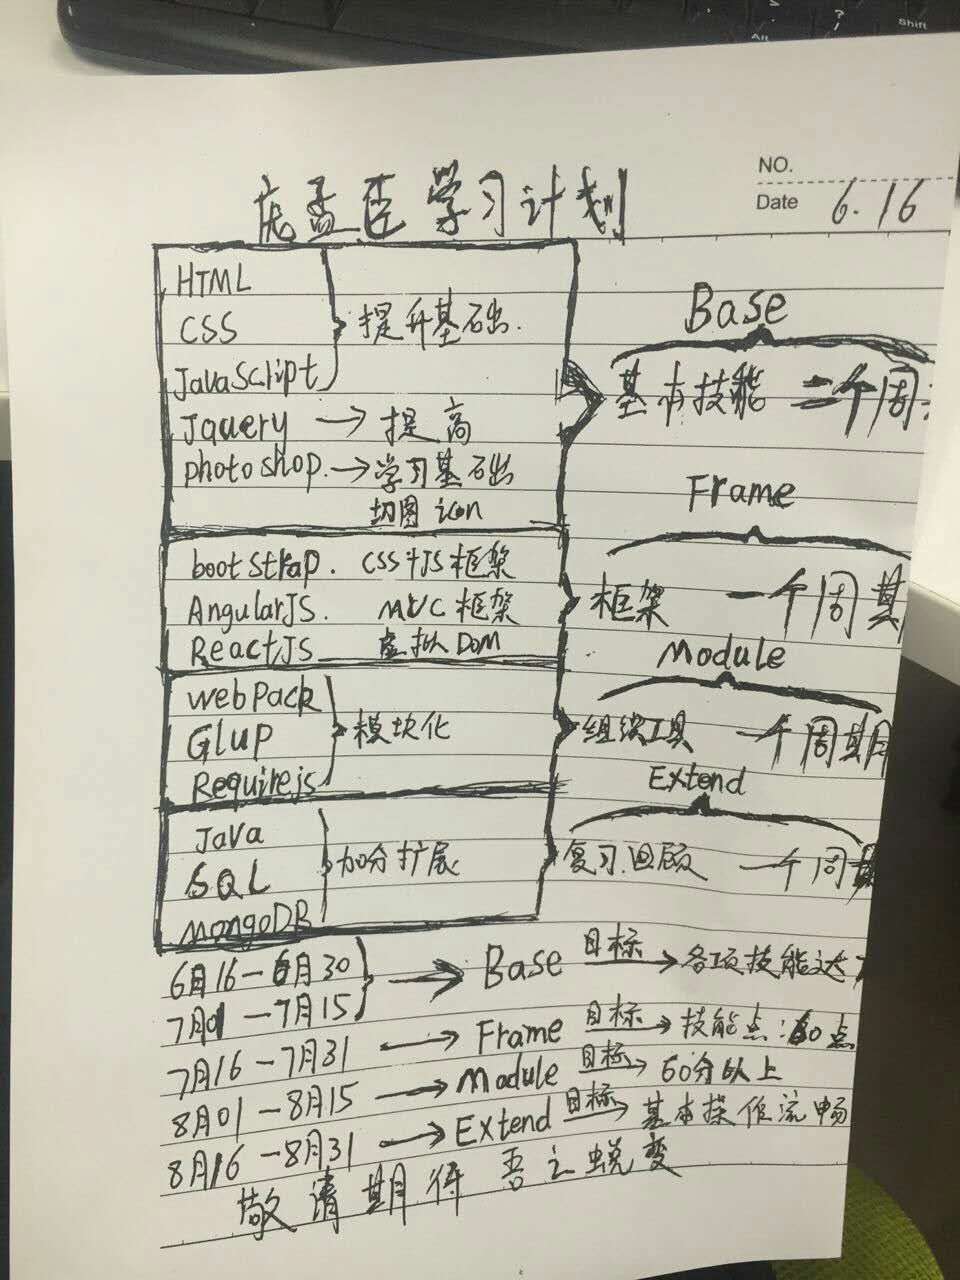 NO.
Date 6.16
庞孟臣学习计划
HTML
CSS
JavaScript
提升基础.
Jquery → 提高
photoshop. → 学习基础
切图 icon
Base
基本技能 二个周
bootstrap. CSS+JS框架
AngularJS. MVC框架
ReactJS 虚拟DOM
Frame
框架 一个周其
webpack
Glup
Requirejs
模块化
Module
组织工具 一个周期
Java
SQL
MongoDB
加分扩展
Extend
复习.回顾 一个周
6月16-6月30
7月01-7月15
→ Base 目标→各项技能达
7月16-7月31 → Frame 目标→技能点:60点
8月01-8月15 → Module 目标→60分以上
8月16-8月31 → Extend 目标→基本操作流畅
敬请期待吾之蜕变
Shift
Alt